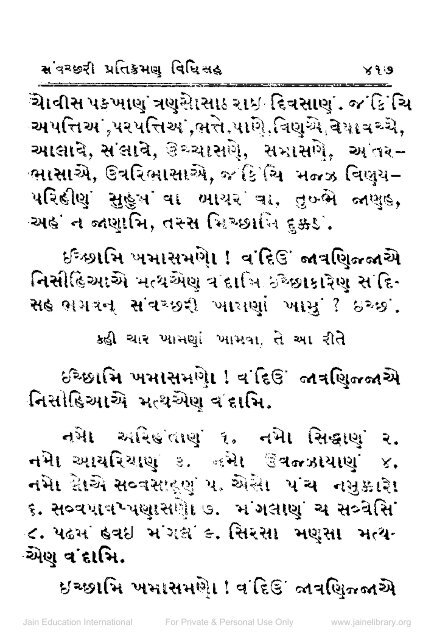 સંવચ્છરી પ્રતિક્રમણ વિધિસહ ૪૧૭
ચોવીસ પક્ખાણં ત્રણસોસાઠ રાઇ દિવસાણં. જં કિંચિ
અપત્તિઅં,પરપત્તિઅં,ભત્તે,પાણે,વિણએ,વેયાવચ્ચે,
આલાવે, સંલાવે, ઉચ્ચાસણે, સમાસણે, અંતર–
ભાસાએ, ઉવરિભાસાએ, જં કિંચિ મજ્ઝ વિણય–
પરિહીણં સુહુમં વા બાયરં વા, તુબ્ભે જાણહ,
અહં ન જાણામિ, તસ્સ મિચ્છામિ દુક્કડં.
ઇચ્છામિ ખમાસમણો ! વંદિઉં જાવણિજ્જાએ
નિસીહિઆએ મત્થએણ વંદામિ ઇચ્છાકારેણ સંદિ-
સહ ભગવન્ સંવચ્છરી ખામણાં ખામું ? ઇચ્છં.
કહી ચાર ખામણાં ખામવા, તે આ રીતે
ઇચ્છામિ ખમાસમણો ! વંદિઉં જાવણિજ્જાએ
નિસીહિઆએ મત્થએણ વંદામિ.
નમો અરિહંતાણં ૧. નમો સિદ્ધાણં ૨.
નમો આયરિયાણં ૩. નમો ઉવજ્ઝાયાણં ૪.
નમો લોએ સવ્વસાહૂણં ૫. એસો પંચ નમુક્કારો
૬. સવ્વપાવપ્પણાસણો ૭. મંગલાણં ચ સવ્વેસિં
૮. પઢમં હવઇ મંગલં ૯. સિરસા મણસા મત્થ-
એણ વંદામિ.
ઇચ્છામિ ખમાસમણો ! વંદિઉં જાવણિજ્જાએ
Jain Education International For Private & Personal Use Only www.jainelibrary.org